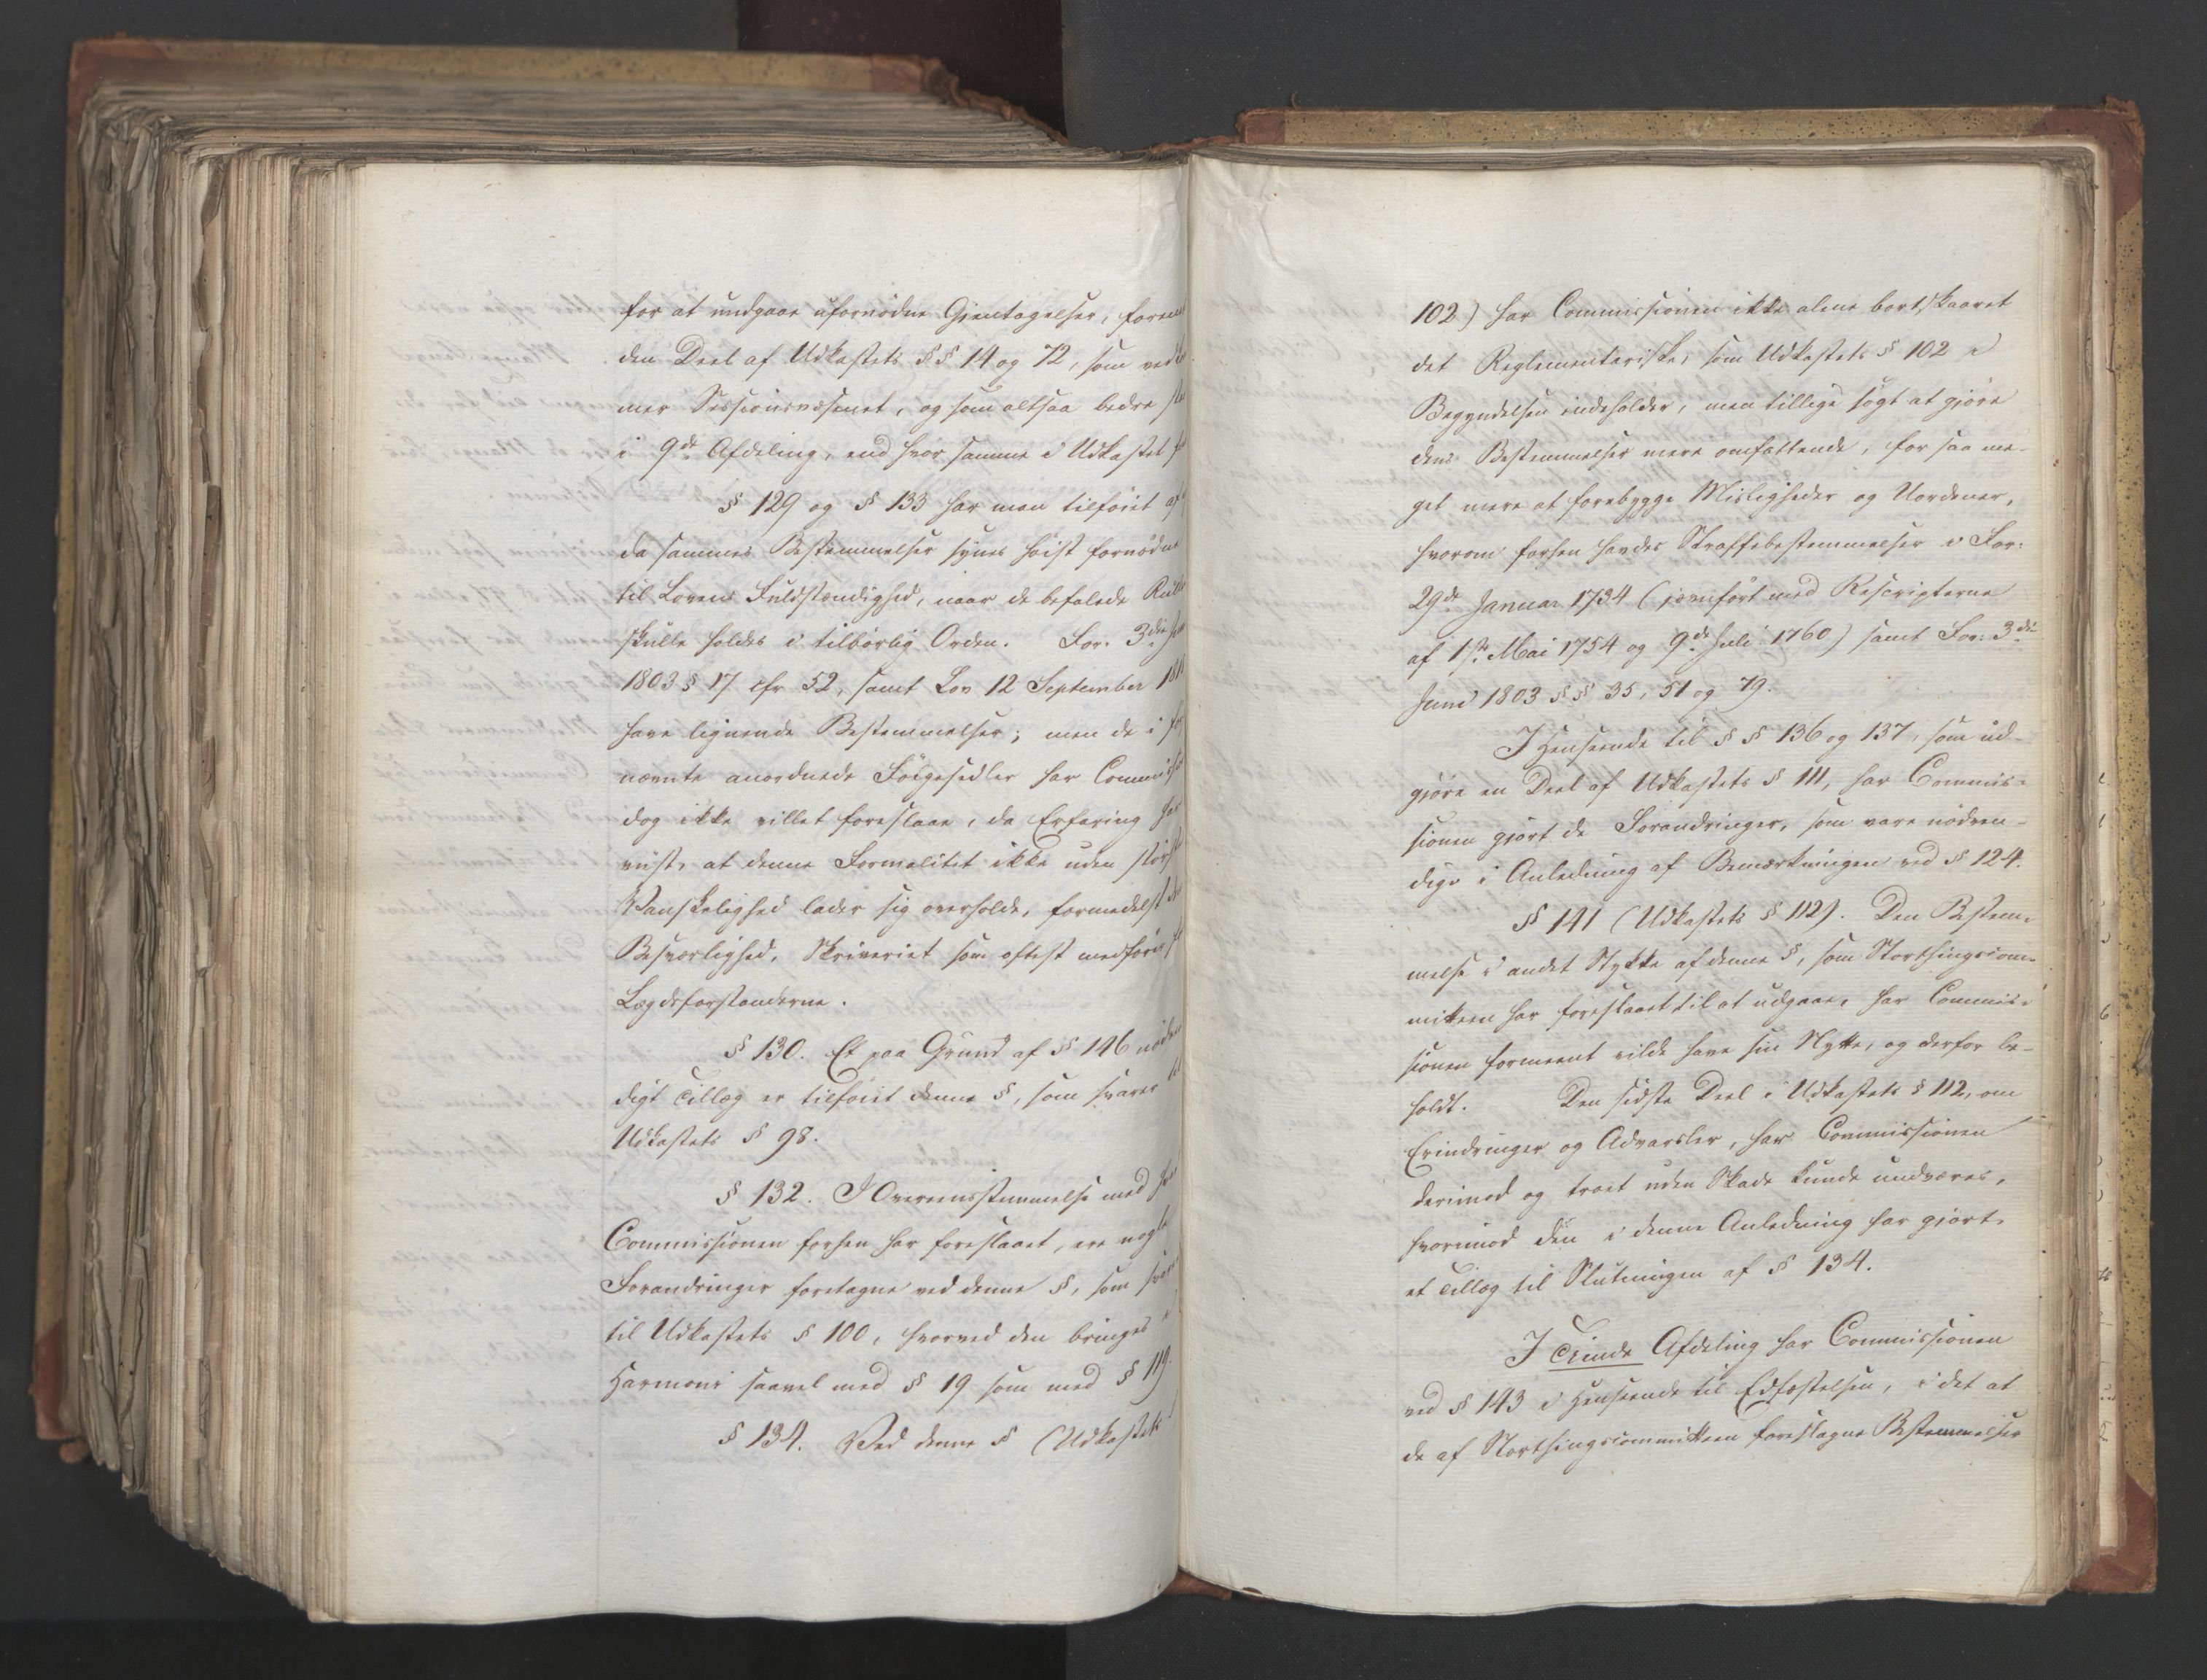 for at undgaae ufornödne Gjentagelser, foren
den Deel af Udkastets §§ 14 og 72, som ved
mer Sessionsvæsenet, og som altsaa bedre
i 9de Afdeling, end hvor samme i Udkastet
§ 129 og § 133 har man tilföiet
da sammes Bestemmelser synes höist fornödne
til Lovens Fuldstændighed, naar de befalede Rull
skulle holdes i tilbörlig Orden. For. 3die
1803 § 17 cfr 52, samt Lov 12 September 181
have lignende Bestemmelser; men de i
nævnte anordnede Fölgesedler har Commissi
dog ikke villet foreslaae, da Erfaring har
viist, at denne Formalitet ikke uden störste
Vanskelighed lader sig overholde, formedelst
Besværlighed, Skriveriet som oftest medförer
Lægdsforstanderne.
§ 130. Et paa Grund af § 146 nödven
digt Tillæg er tilföiet denne §, som svarer til
Udkastets § 98.
§ 132. I Overeensstemmelse med
Commissionen forhen har foreslaaet, ere nogle
Forandringer foretagne ved denne §, som svarer
til Udkastets § 100, hvorved den bringes i
Harmoni saavel med § 19 som med § 119.
§ 134. Ved denne § (Udkastets
102) har Commissionen ikke alene bortskaaret
det Reglementariske, som Udkastets § 102 i
Begyndelsen indeholder, men tillige sögt at gjöre
dens Bestemmelser mere omfattende, for saa me-
get mere at forebygge Misligheder og Uordener,
hvorom forhen havdes Straffebestemmelser i For:
29de Januar 1734 (jævnfört med Rescripterne
af 1ste Mai 1754 og 9de Juli 1760) samt For: 3die
Juni 1803 §§ 35, 51 og 79.
I Henseende til §§ 136 og 137, som ud-
gjöre en Deel af Udkastets § 111, har Commis-
sionen gjört de Forandringer, som vare nödven-
dige i Anledning af Bemærkningen ved § 124.
§ 141 (Udkastets § 112). Den Bestem-
melse i andet Stykke af denne §, som Storthingscom-
miteen har foreslaaet til at udgaae, har Commis-
sionen formeent vilde have sin Nytte, og derfor be-
holdt. Den sidste Deel i Udkastets § 112, om
Erindringer og Advarsler, har Commissionen
derimod og troet uden Skade kunde undværes,
hvorimod den i denne Anledning har gjört
et Tillæg til Slutningen af § 134.
I Tiende Afdeling har Commissionen
ved § 143 i Henseende til Edfæstelsen, i det at
de af Storthingscommitteen foreslagne Bestemmelser